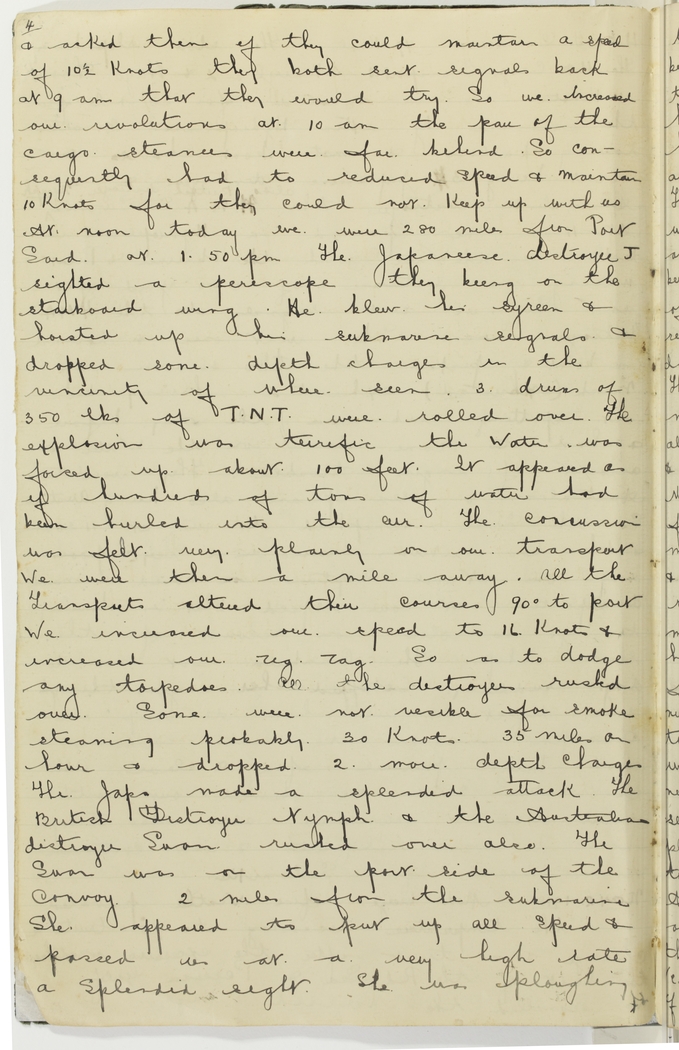 4
& asked them if they could maintain a speed
of 10½ Knots they both sent signals back
at 9 am that they would try. So we. Increased
our revolutions at 10 am the pair of the
cargo steamers were far behind. So con-
sequently had to reduced speed & maintain
10 Knots for they could not. Keep up with us
At. noon today we. were 280 miles from Port
Said. at. 1.50 pm the Japaneese destroyer J
sighted a perescope they being on the
starboard wing. He blew his syreen &
hoisted up his submarine seignals. &
dropped some depth charges in the
vincinity of where. seen. 3. drums of
350 lbs of T.N.T. were. rolled over. The
explosion was teirific the Water was
forced up about. 100 feet. It appeared as
if hundreds of tons of water had
been hurled into the air. The concussion
was felt. very plainly on our. transport
We were then a mile away. All the
Transports altered their courses 90° to port
We increased our speed to 16 Knots &
increased our zig. zag. So as to dodge
any torpedoes. The destroyers rushed
over. Some. were. not. vesible for smoke
steaming probably. 30 Knots. 35 miles an
hour & dropped. 2. more. depth Charges
The. Japs made a splended attack. The
British Destroyer Nymph & the Australian
destroyer Swan rushed over also. The
Swan was on the port side of the
Convoy 2 miles from the submarine
She appeared to put up all speed &
passed us at. a. very high rate
a splendid sight. She was ploughing